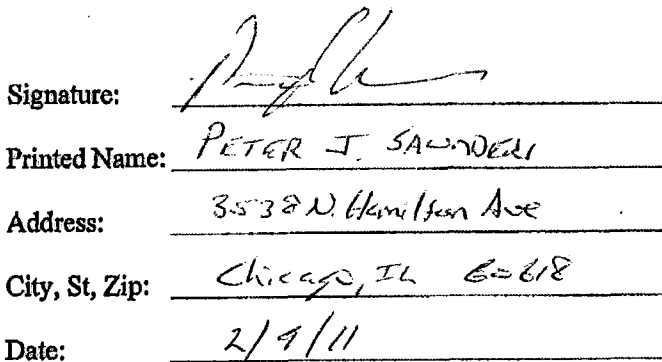 Signature:
Printed Name: PETER J. SAUNDERS
Address: 3538 N. Hamilton Ave
City, St, Zip: Chicago, IL 60618
Date: 2/9/11